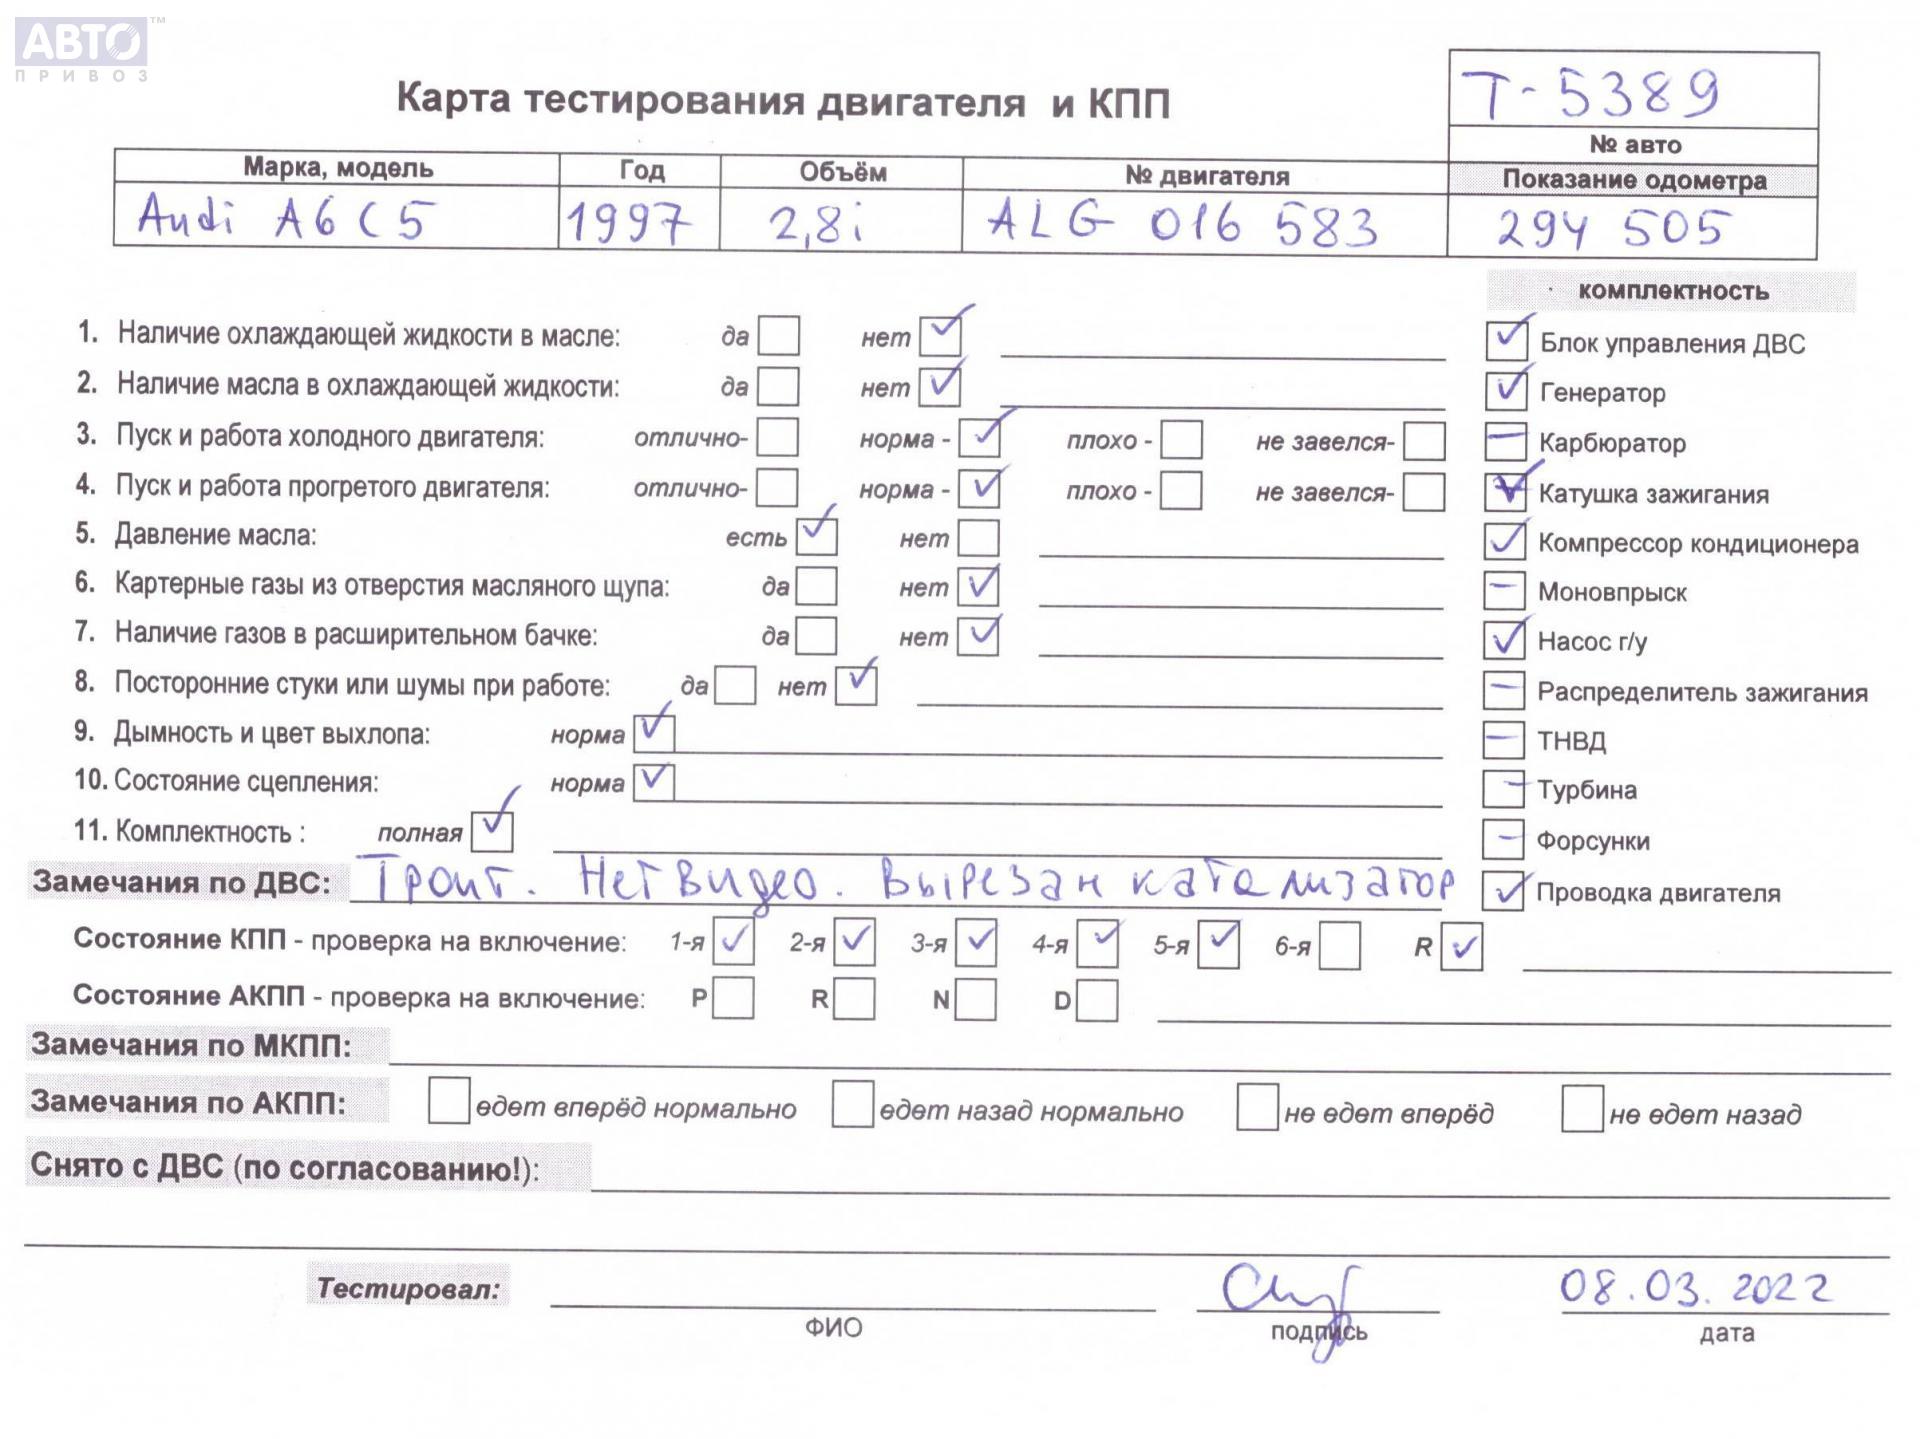 АВТО™
ПРИВОЗ
Карта тестирования двигателя и КПП
Т-5389
№ авто
Марка, модель Год Объём № двигателя Показание одометра
Audi A6 C5 1997 2,8i ALG 016 583 294 505
комплектность
1. Наличие охлаждающей жидкости в масле: да нет ✓
✓ Блок управления ДВС
2. Наличие масла в охлаждающей жидкости: да нет ✓
✓ Генератор
3. Пуск и работа холодного двигателя: отлично- норма - ✓ плохо - не завелся-
— Карбюратор
4. Пуск и работа прогретого двигателя: отлично- норма - ✓ плохо - не завелся-
✓ Катушка зажигания
5. Давление масла: есть ✓ нет
✓ Компрессор кондиционера
6. Картерные газы из отверстия масляного щупа: да нет ✓
— Моновпрыск
7. Наличие газов в расширительном бачке: да нет ✓
✓ Насос г/у
8. Посторонние стуки или шумы при работе: да нет ✓
— Распределитель зажигания
9. Дымность и цвет выхлопа: норма ✓
— ТНВД
10. Состояние сцепления: норма ✓
— Турбина
11. Комплектность : полная ✓
— Форсунки
Замечания по ДВС: Троит. Нет видео. Вырезан катализатор
✓ Проводка двигателя
Состояние КПП - проверка на включение: 1-я ✓ 2-я ✓ 3-я ✓ 4-я ✓ 5-я ✓ 6-я R ✓
Состояние АКПП - проверка на включение: P R N D
Замечания по МКПП:
Замечания по АКПП: едет вперёд нормально едет назад нормально не едет вперёд не едет назад
Снято с ДВС (по согласованию!):
Тестировал: 08.03.2022
ФИО подпись дата